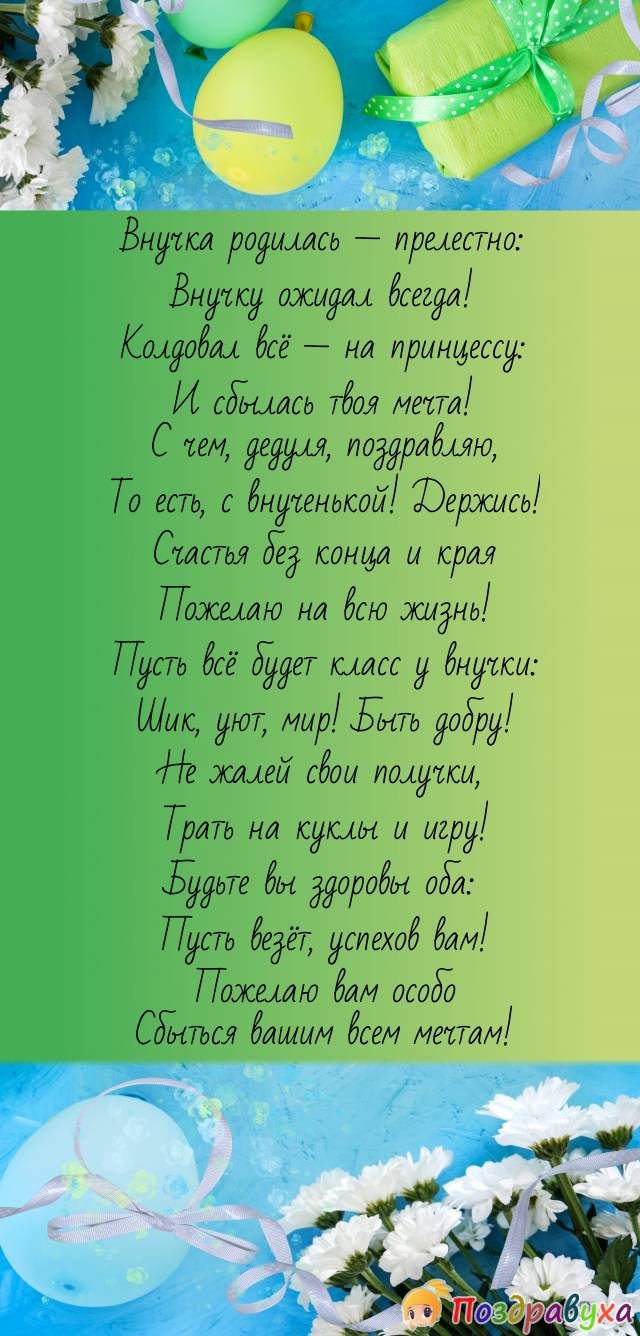 Внучка родилась — прелестно:
Внучку ожидал всегда!
Колдовал всё — на принцессу:
И сбылась твоя мечта!
С чем, дедуля, поздравляю,
То есть, с внученькой! Держись!
Счастья без конца и края
Пожелаю на всю жизнь!
Пусть всё будет класс у внучки:
Шик, уют, мир! Быть добру!
Не жалей свои получки,
Трать на куклы и игру!
Будьте вы здоровы оба:
Пусть везёт, успехов вам!
Пожелаю вам особо
Сбыться вашим всем мечтам!
Поздравуха